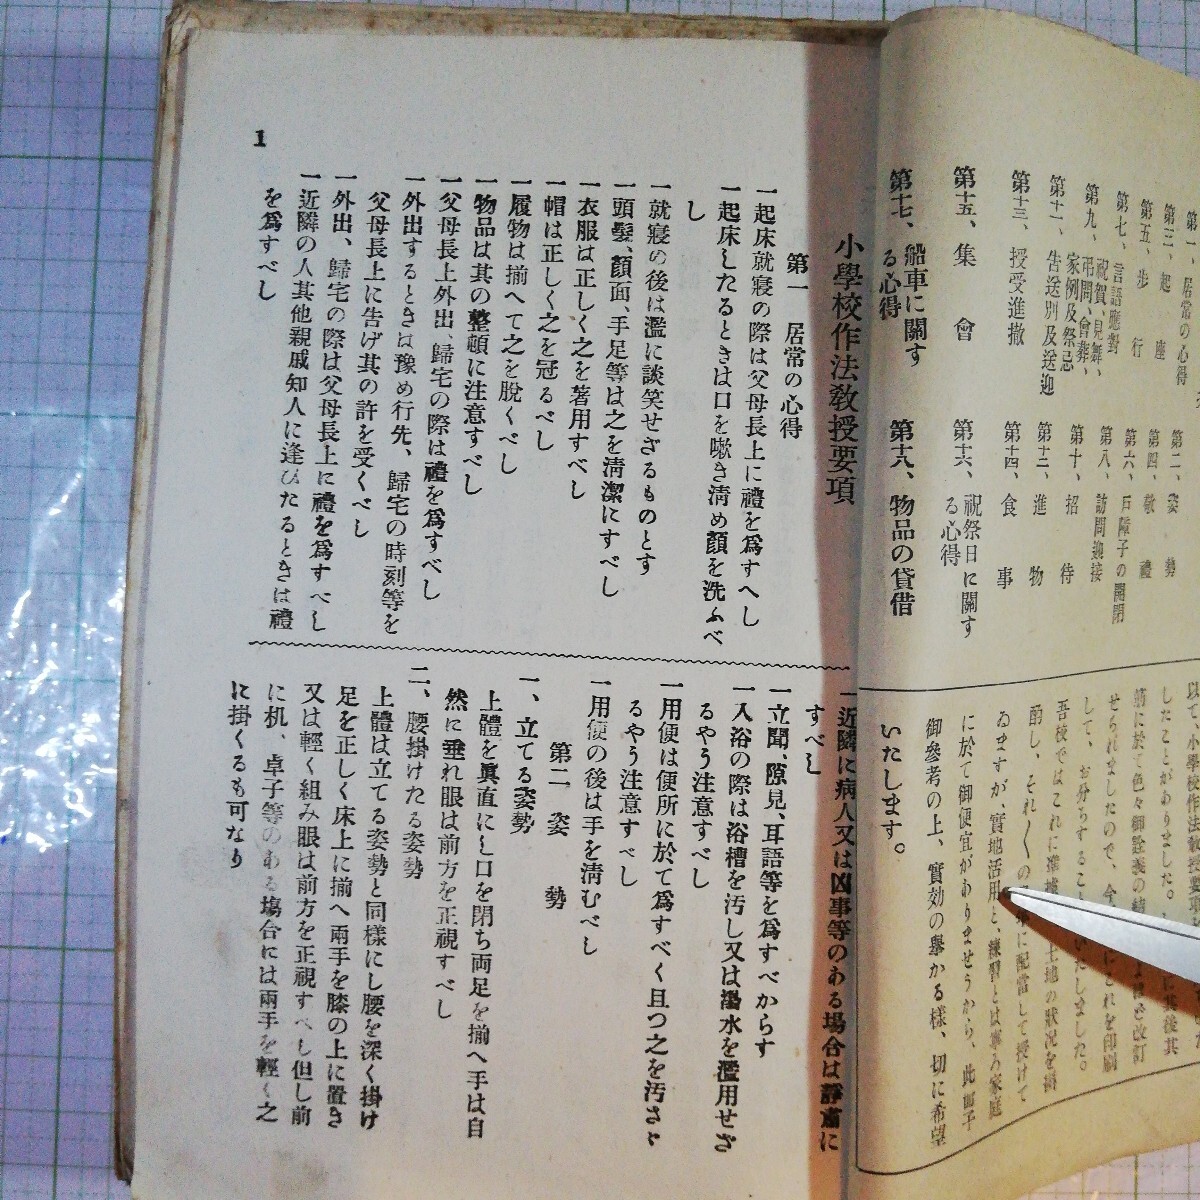 第一、居常の心得
第二、姿勢
第三、起座
第四、敬禮
第五、步行
第六、戸障子の開閉
第七、言語應對
第八、訪問迎接
第九、祝賀、見舞、弔問、會葬、家例及祭忌
第十、招待
第十一、告送別及送迎
第十二、進物
第十三、授受進撤
第十四、食事
第十五、集會
第十六、祝祭日に關する心得
第十七、船車に關する心得
第十八、物品の貸借
したことがありました。
せられましたので、今
して、お分ちすること いたしました。
吾校ではこれに準據 土地の狀況を斟
酌し、それ〱の に配當して授けて
ゐますが、實地活用と、練習とは寧ろ家庭
に於て御便宜がありませうから、此冊子
御參考の上、實効の擧がる樣、切に希望
いたします。
小學校作法敎授要項
第一 居常の心得
一起床就寢の際は父母長上に禮を爲すへし
一起床したるときは口を嗽き淸め顏を洗ふべ
し
一就寢の後は濫に談笑せざるものとす
一頭髮、顏面、手足等は之を淸潔にすべし
一衣服は正しく之を著用すべし
一帽は正しく之を冠るべし
一履物は揃へて之を脫くべし
一物品は其の整頓に注意すべし
一父母長上外出、歸宅の際は禮を爲すべし
一外出するときは豫め行先、歸宅の時刻等を
父母長上に告げ其の許を受くべし
一外出、歸宅の際は父母長上に禮を爲すべし
一近隣の人其他親戚知人に逢ひたるときは禮
を爲すべし
一近隣に病人又は凶事等のある場合は靜肅に
すべし
一立聞、隙見、耳語等を爲すべからす
一入浴の際は浴槽を汚し又は湯水を濫用せざ
るやう注意すべし
一用便は便所に於て爲すべく且つ之を汚さゞ
るやう注意すべし
一用便の後は手を淸むべし
第二 姿勢
一、立てる姿勢
上體を眞直にし口を閉ち両足を揃へ手は自
然に垂れ眼は前方を正視すべし
二、腰掛けたる姿勢
上體は立てる姿勢と同樣にし腰を深く掛け
足を正しく床上に揃へ兩手を膝の上に置き
又は輕く組み眼は前方を正視すべし但し前
に机、卓子等のある塲合には兩手を輕く之
に掛くるも可なり
1